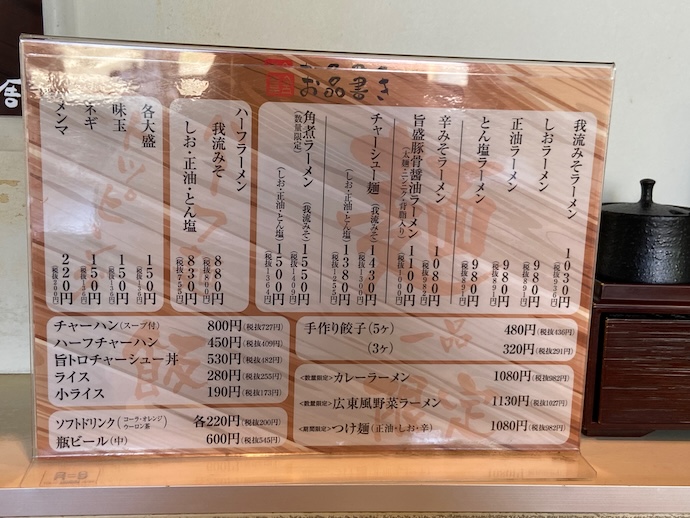 お品書き
我流みそラーメン 1030円(税抜936円)
しおラーメン 980円(税抜891円)
正油ラーメン 980円(税抜891円)
とん塩ラーメン 980円(税抜891円)
辛みそラーメン 1080円(税抜982円)
旨盛豚骨醤油ラーメン 1100円(税抜1000円)
(太麺・ニンニク・背脂入り)
チャーシュー麺 (我流みそ) 1430円(税抜1300円)
(しお・正油・とん塩) 1380円
角煮ラーメン (我流みそ) 1550円
(数量限定) (しお・正油・とん塩) 1500円(税抜1364円)
ハーフラーメン
我流みそ 880円(税抜800円)
しお・正油・とん塩 830円(税抜755円)
各大盛 150円
味玉 150円
ネギ 150円
メンマ 220円(税抜200円)
チャーハン(スープ付) 800円(税抜727円)
ハーフチャーハン 450円(税抜409円)
旨トロチャーシュー丼 530円(税抜482円)
ライス 280円(税抜255円)
小ライス 190円(税抜173円)
ソフトドリンク(コーラ・オレンジ ウーロン茶) 各220円(税抜200円)
瓶ビール(中) 600円(税抜545円)
手作り餃子(5ヶ) 480円(税抜436円)
(3ヶ) 320円(税抜291円)
一品
<数量限定>カレーラーメン 1080円(税抜982円)
<数量限定>広東風野菜ラーメン 1130円(税抜1027円)
<期間限定>つけ麺(正油・しお・辛) 1080円(税抜982円)